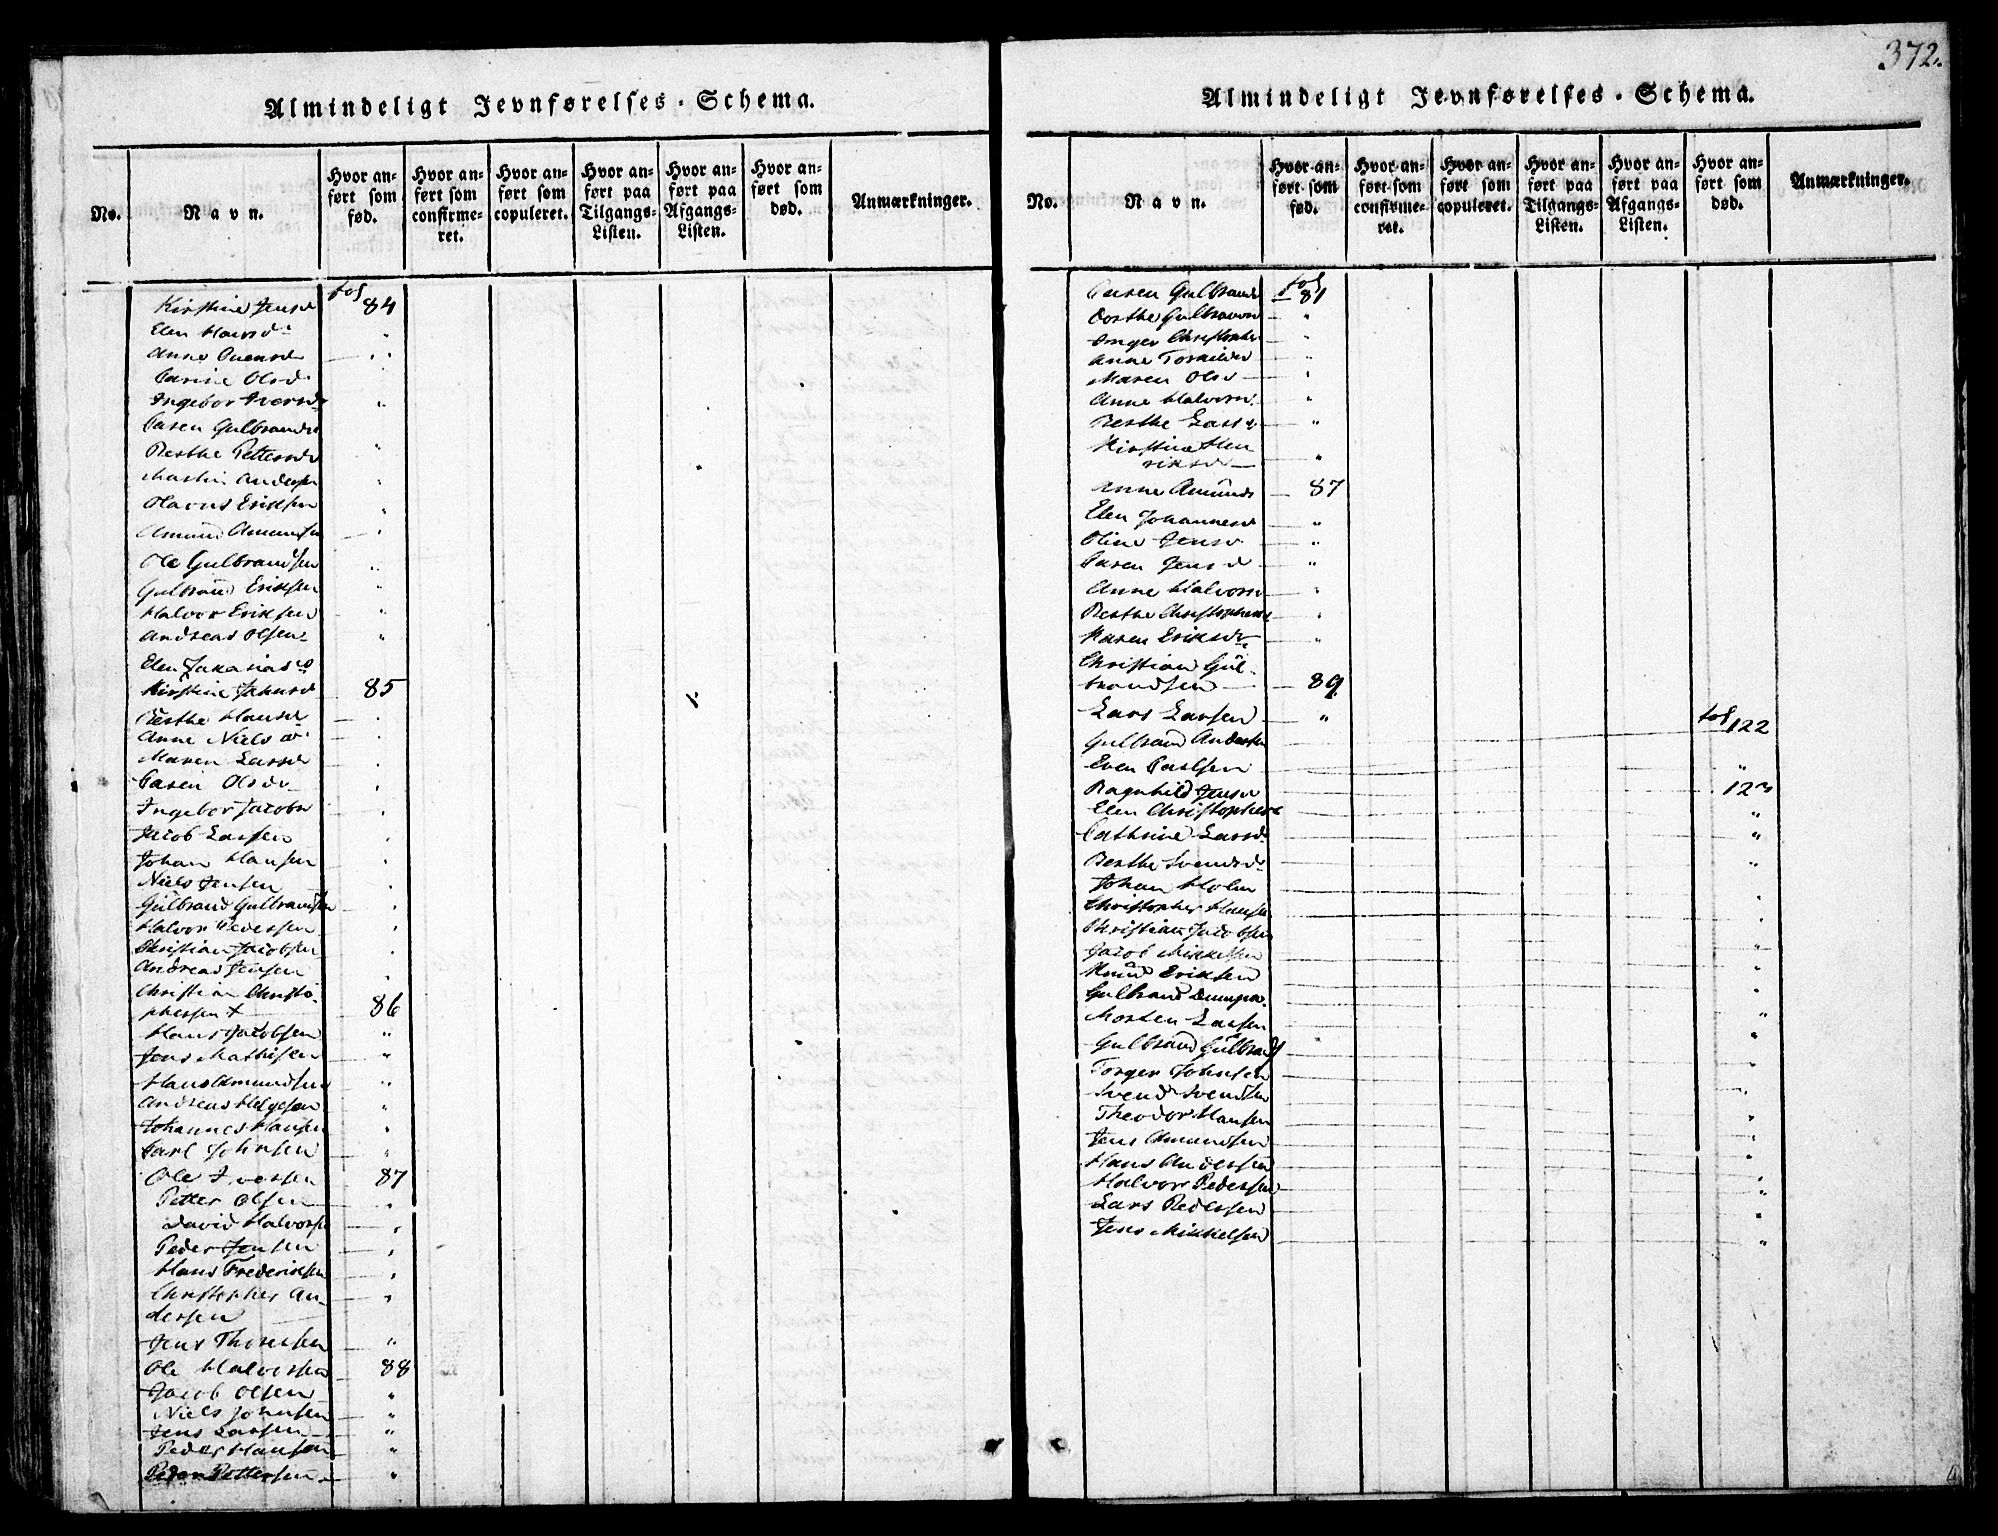 372.
Almindeligt Jevnførelses-Schema.
No.
Navn.
Hvor anført som fød.
Hvor anført som confirmeret.
Hvor anført som copuleret.
Hvor anført paa Tilgangs-Listen.
Hvor anført paa Afgangs-Listen.
Hvor anført som død.
Anmærkninger.
fol
Kirstine Jensd 84
Elen Hansd "
Anne "
Carine Olsd "
Ingebor Iversd "
Caren Gulbrandsd
Berthe Pettersd "
Martin Andersen "
Havns Eriksen "
Amund Amundsen "
Ole Gulbrandsen "
Gulbrand Eriksen "
Halvor Eriksen "
Andreas Olsen "
Elen
Kirstine Johnsd 85
Berthe Hansd "
Anne Nielsd "
Maren Larsd "
Caren Olsd "
Ingebor Jacobs "
Jacob Larsen "
Johan Hansen "
Niels Jensen "
Gülbrand Gulbrandsen "
Halvor Pedersen "
Christian Jacobsen "
Andreas Jensen "
Christian Christo-
phersen + 86
Hans Jacobsen "
Jens Mathisen "
Hans Amundsen "
Andreas Helgesen "
Johannes Hansen "
Carl Johnsen "
Ole Iversen 87
Petter Olsen "
David Halvorsen "
Peder Jensen "
Hans Frederiksen "
Christopher An- "
dersen
Jens Thoresen "
Ole Halvorsen 88
Jacob Olsen "
Niels Johnsen "
Jens Larsen "
Peder Hansen "
Peder Pettersen "
Almindeligt Jevnførelses-Schema.
No.
Navn.
Hvor anført som fød.
Hvor anført som confirmeret.
Hvor anført som copuleret.
Hvor anført paa Tilgangs-Listen.
Hvor anført paa Afgangs-Listen.
Hvor anført som død.
Anmærkninger.
fol
Caren Gulbrandsd 81
Dorthe Gulbrands "
Inger Christophe "
Anne Torkilds "
Maren Olsd "
Anne Halvors "
Berthe Larsd "
Kirstine Hen
riksd "
Anne Amunds 87
Elen Johannesd "
Oline Jensd "
Caren Jensd "
Anne Halvors "
Berthe Christophers "
Karen Eriksd "
Christian Gül-
brandsen 89
Lars Larsen "
fol
Gulbrand Andersen 122
Even Carlsen "
Ragnhild Jensd 123
Elen Christophers "
Cathrine Larsd "
Berthe Svendsd "
Johan Holm "
Christopher Hansen "
Christian Jacobsen "
Jacob Mikkelsen "
Knud Eriksen "
Gulbrand "
Morten Larsen "
Gulbrand Gülbrands "
Torger Johnsen "
Svend Svendsen "
Theodor Hansen "
Jens Amundsen "
Hans Andersen "
Halvor Pedersen "
Lars Pedersen "
Jens Mikkelsen "